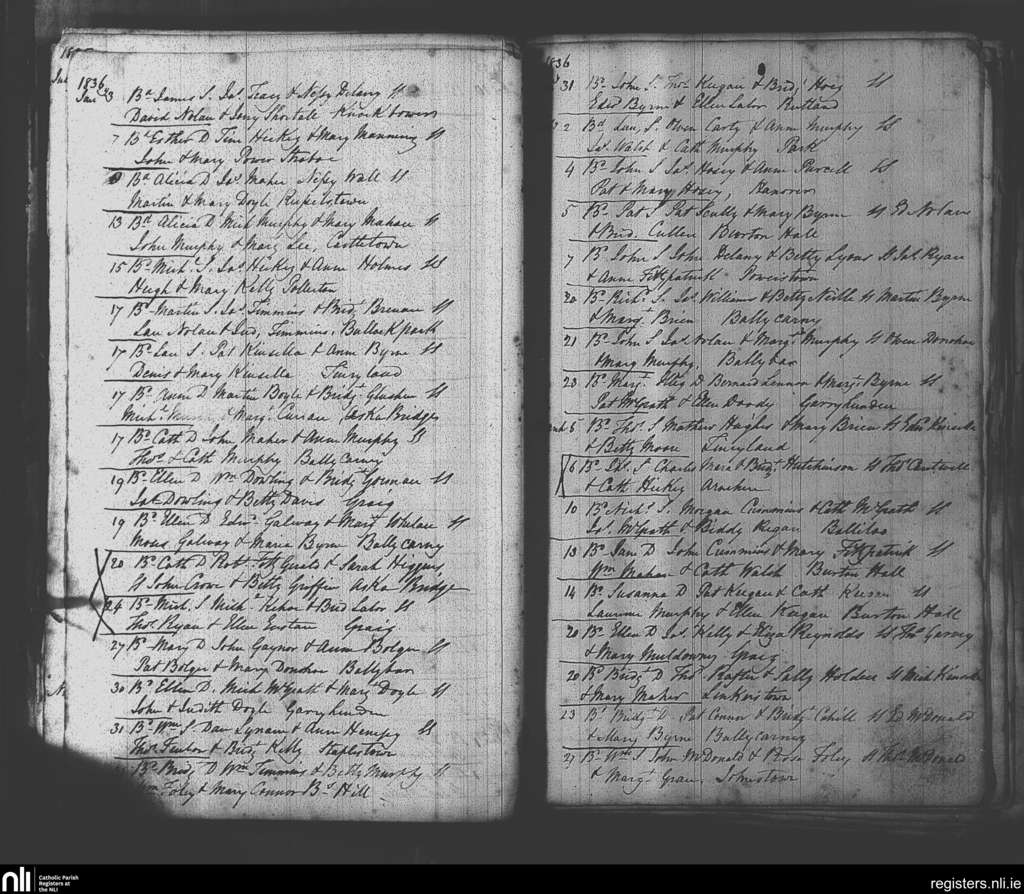 1836
Jan 3 Bd James S. Jas Tracy & Nessy Delany Ss
David Nolan & Jony Shortall Knockbower
7 Bd Esther D Tim Hickey & Mary Manning Ss
John & Mary Power Straboe
8 Bd Alicia D Jas Maher Nessy Wall Ss
Martin & Mary Doyle Russelstown
13 Bd Alicia D Mich Murphy & Mary Mahar Ss
John Murphy & Marg Lee, Castletown
15 Bd Michl S. Jas Hickey & Anne Holmes Ss
Hugh & Mary Kelly Pollerton
17 Bd Martin S. Jas Timmins & Bridt Brenan Ss
Lau Nolan & Jud, Timmins, Bullock park
17 Bd Lau S. Pat Kinsella & Anne Byrne Ss
Denis & Mary Kinsella Linyland
17 Bd Anne D Martin Boyle & Bridgt Glushen Ss
Michl & Margt Curran Aska Bridge
17 Bd Cath D John Maher & Anne Murphy Ss
Thos & Cath Murphy Ballycarny
19 Bd Ellen D Wm Dowling & Bridgt Gorman Ss
Jas Dowling & Betty Davis Graig
19 Bd Ellen D Edwd Galway & Mary Whelan Ss
Moses Galway & Maria Byrne Ballycarny
20 Bd Cath D Robt & Sarah Higgins,
Ss John Crowe & Betty Griffin Aska Bridge
24 Bd Mich. S Michl Kehoe & Brid Lalor Ss
Thos Ryan & Ellen Eustace Graig
27 Bd Mary D John Gaynor & Anne Bolger Ss
Pat Bolger & Mary Donohoe Ballybar
30 Bd Ellen D. Mich McGrath & Marg Doyle Ss
John & Judith Doyle Garryhunden
31 Bd Wm S Dan Lynam & Anne Hempsy Ss
Thos Fenlon & Bridt Kelly Staplestown
Bd Bridgt D Wm Timmins & Betty Murphy Ss
Foley & Mary Connor Bs Hill
1836
31 Bd John S. Thos Keegan & Bridt Hoey Ss
Edwd Byrne & Ellen Lalor Rutland
2 Bd Lau, S. Owen Carty & Anne Murphy Ss
Jas Walsh & Cath Murphy Park
4 Bd John S Jas Hosey & Anne Purcell Ss
Pat & Mary Hosey, Hanover
5 Bd Pat S Pat Scully & Mary Byrne Ss Ed Nolan
& Brid. Cullen Burton Hall
7 Bd John S John Delany & Betty Lyons Ss Jas Ryan
& Anne Fitzpatrick Powerstown
20 Bd Richd S. Jas Williams & Betty Neill Ss Martin Byrne
& Margt Brien Ballycarny
21 Bd John S Jas Nolan & Margt Murphy Ss Owen Donohoe
& Marg Murphy. Ballybar
23 Bd Margt Eliza D Bernard Lennon & Margt Byrne Ss
Pat McGrath & Ellen Doody Garryhunden
5 Bd Thos S Mathew Hughes & Mary Brien Ss Edwd Kinsella
& Betty Moore Linyland
6 Bd S. Charles Mara & Bridgt Hutchinson Ss Thos Cantwell
& Cath Hickey
10 Bd Nichs S. Morgan Cummins & Cath McGrath Ss
Jas McGrath & Biddy Regan Balliloo
13 Bd Jane D John Cummins & Mary Fitzpatrick Ss
Wm Mahar & Cath Walsh Burton Hall
14 Bd Susanna D Pat Keegan & Cath Ss
Laurence Murphy & Ellen Keegan Burton Hall
20 Bd Ellen D Jas Kelly & Eliza Reynolds Ss Thos Garvey
& Mary Muldowny Graig
20 Bd Bridgt D Thos Rafter & Sally Holden Ss Mich Kinsella
& Mary Maher Linkerstown
23 Bd Bridgt D. Pat Connor & Bridgt Cahill Ss Ed McDonald
& Mary Byrne Ballycarny
27 Bd Wm S John McDonald & Rose Foley Ss Thos McDonald
& Margt Grace, Johnstown
nli Catholic Parish
Registers at
the NLI
registers.nli.ie